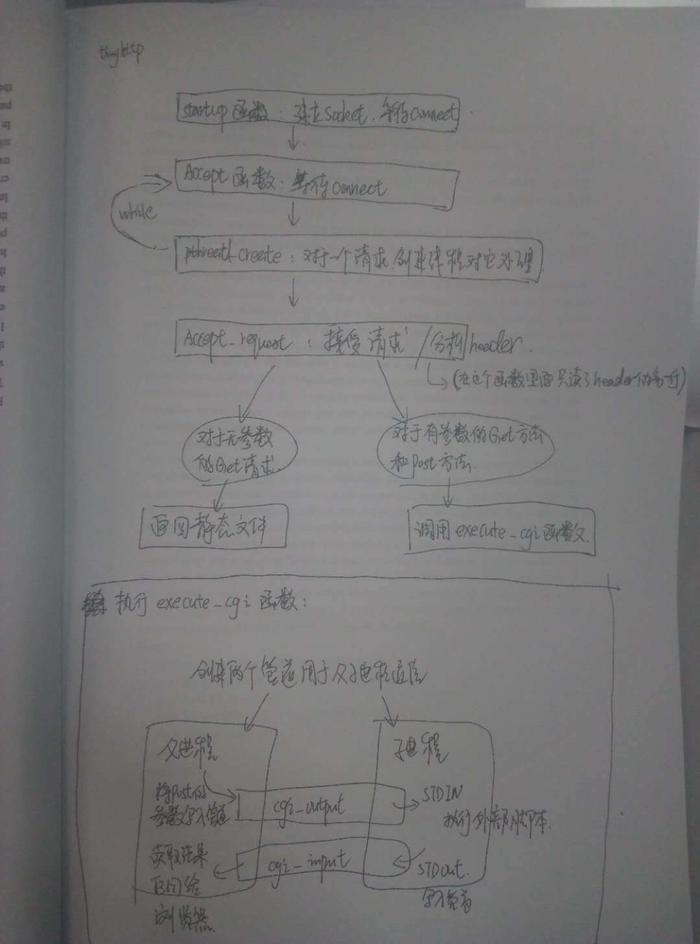 tinyhttp
startup函数：建立Socket. 等待connect
Accept函数：等待connect
while
pthread_create：对于一个请求,创建线程对它处理
Accept_request：接受请求 / 分析header.
(在这个函数里面只读了header的第一行)
对于无参数
的Get请求
对于有参数的Get方法
和post方法.
返回静态文件
调用execute_cgi函数
执行 execute_cgi 函数：
创建两个管道用于父子进程通信
父进程
子进程
将post的
参数写入管道
cgi_output
STDIN
执行外部脚本
读取结果
返回给
浏览器
cgi_input
STDout.
写入管道